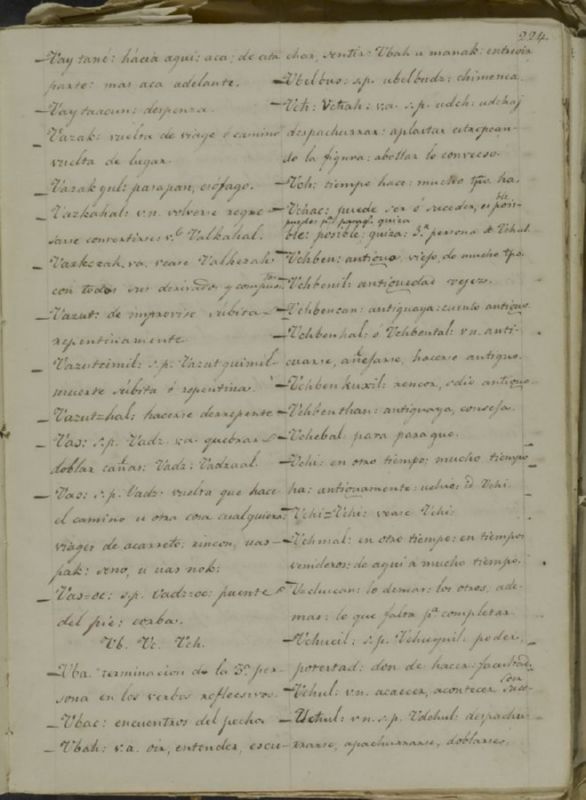 224.
Vay tané: hácia aqui; aca; de esta
parte: mas aca adelante.
Vaytaacun: despenza.
Vazak: vuelta de viage ó camino
vuelta de lugar.
Vazakgul: parapan, esófago.
Vazkahal: v.n. volverse regre-
sarse convertirse: v.e Valkahal.
Vazkezah. va. vease Valkezah
con todos sus derivados y compues.tos
Vazut: de improviso súbita
repentinamente
Vazutcimil: s.p. Vazutquimil-
muerte súbita ó repentina.
Vazutzhal: hacerse derrepente
Vas: s.p. Vadz. va. quebrar
doblar cañas: Vadz: Vadzaal.
Vas: s.p. Vadz: vuelta que hace
el camino u otra cosa cualquiera:
viages de acarreto: rincon, uas
pak: seno, u uas nok:
Vas=oc: s.p. Vadz=oc: puente
del pie: corba.
Vb. Vc. Vch.
Vba. terminacion de la 3a. per-
sona en los verbos reflecsivos.
Vbac: encuentros del pecho
Vbah: v.a. oir, entender, escu-
char, sentir. Vbah u manak: entreoir
Vbelbus: s.p. ubelbudz: chimenea.
Vch: Vchah: v.a. s.p. udch: udchaj
despachurrar: aplastar estropean-
do la figura: abollar lo convecso.
Vch: tiempo hace: mucho tpo. ha.
Vchac: puede ser ó suceder, es posi-
ble: posible: quiza: 3.a persona de Vchul
Vchben: antiguo, viejo, de mucho tpo.
Vchbenil: antiguedas vejez.
Vchbencan: antiguaya: cuento antiguo
Vchbenhal: ó Vchbental: v.n. anti-
cuarse, añejarse, hacerse antiguo.
Vchbenkuxil: rencor, odio antiguo
Vchbenthan: antiguaya, conseja.
Vchebal para paraque.
Vchi: en otro tiempo; mucho tiempo
ha: antiguamente:
Vchi=Vchi: vease Vchi.
Vchmal: en otro tiempo: en tiempos
venideros: de aqui á mucho tiempo.
lo demas: los otros, ade-
mas: lo que falta pa. completar
Vchucil: s.p. Vchuquil: poder,
potestad: don de hacer: facultad.
Vchul: v.n. acaecer, acontecer
Vchul: v.n. s.p. Vdchul: despachu-
rrarse, apachurrarse, doblarse,